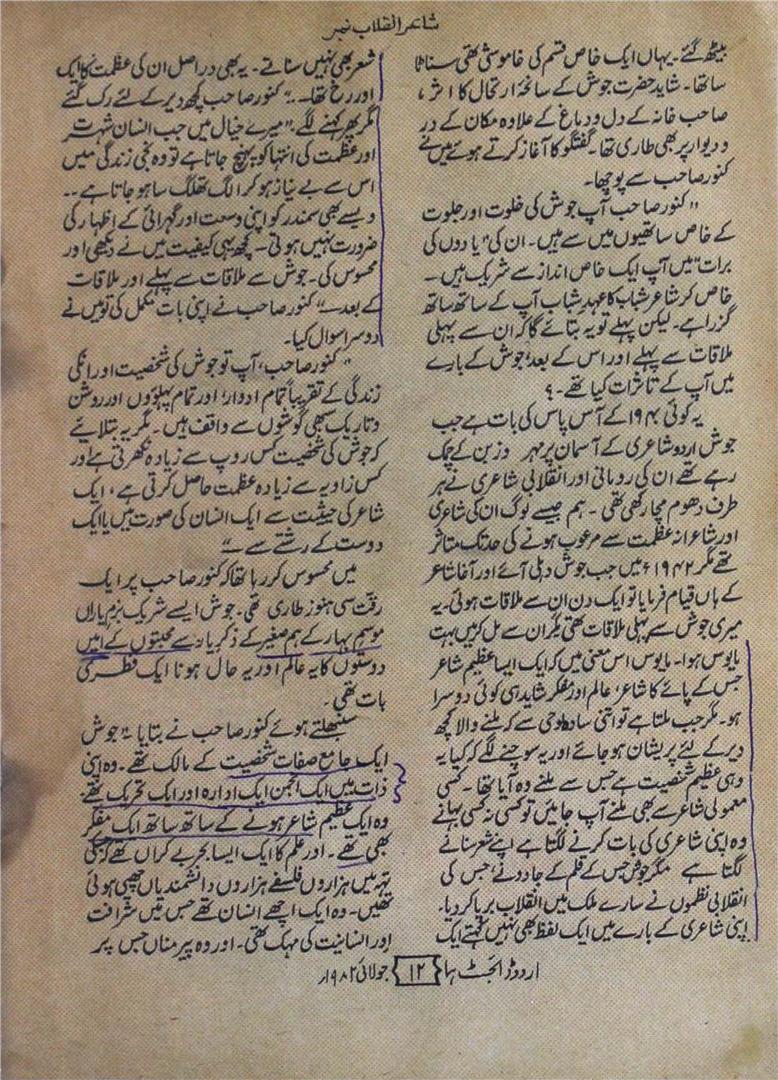 شاعر انقلاب نمبر
بیٹھ گئے۔ یہاں ایک خاص قسم کی خاموشی تھی سناٹا
سا تھا۔ شاید حضرت جوش کے سانحۂ ارتحال کا اثر،
صاحب خانہ کے دل و دماغ کے علاوہ مکان کے در
و دیوار پر بھی طاری تھا۔ گفتگو کا آغاز کرتے ہوئے میں نے
کنور صاحب سے پوچھا۔
"کنور صاحب آپ جوش کی خلوت اور جلوت
کے خاص ساتھیوں میں سے ہیں۔ ان کی "یادوں کی
برات" میں آپ ایک خاص انداز سے شریک ہیں۔
خاص کر شاعر شباب کا عہدِ شباب آپ کے ساتھ ساتھ
گزرا ہے۔ لیکن پہلے تو یہ بتائے گا کہ ان سے پہلی
ملاقات سے پہلے اور اس کے بعد، جوش کے بارے
میں آپ کے تاثرات کیا تھے۔ ؟
یہ کوئی ۱۹۴۰ کے آس پاس کی بات ہے جب
جوش اردو شاعری کے آسمان پر مہر وزیں کے چمک
رہے تھے ان کی رومانی اور انقلابی شاعری نے ہر
طرف دھوم مچا رکھی تھی۔ ہم جیسے لوگ ان کی شاعری
اور شاعرانہ عظمت سے مرعوب ہونے کی حد تک متاثر
تھے مگر ۱۹۴۲ء میں جب جوش دہلی آئے اور آغا شاعر
کے ہاں قیام فرمایا تو ایک دن ان سے ملاقات ہوئی۔ یہ
میری جوش سے پہلی ملاقات تھی مگر ان سے مل کر میں بہت
مایوس ہوا۔ مایوس اس معنی میں کہ ایک ایسا عظیم شاعر
جس کے پائے کا شاعر، عالم اور مفکر شاید ہی کوئی دوسرا
ہو۔ مگر جب ملتا ہے تو اتنی سادہ لوحی سے کہ ملنے والا کچھ
دیر کے لئے پریشان ہو جائے اور یہ سوچنے لگے کہ کیا یہ
وہی عظیم شخصیت ہے جس سے ملنے وہ آیا تھا۔ کسی
معمولی شاعر سے بھی ملنے آپ جائیں تو کسی نہ کسی بہانے
وہ اپنی شاعری کی بات کرنے لگتا ہے اپنے شعر سنانے
لگتا ہے مگر جوش جس کے قلم کے جادو نے، جس کی
انقلابی نظموں نے سارے ملک میں انقلاب برپا کر دیا۔
اپنی شاعری کے بارے میں ایک لفظ بھی نہیں کہتے ایک
شعر بھی نہیں سناتے۔ یہ بھی دراصل ان کی عظمت کا ایک
اور رخ تھا۔" کنور صاحب کچھ دیر کے لئے رک گئے
مگر پھر کہنے لگے، "میرے خیال میں جب انسان شہرت
اور عظمت کی انتہا کو پہنچ جاتا ہے تو وہ نجی زندگی میں
اس سے بے نیاز ہو کر الگ تھلگ سا ہو جاتا ہے۔۔
ویسے بھی سمندر کو اپنی وسعت اور گہرائی کے اظہار کی
ضرورت نہیں ہوتی۔ کچھ یہی کیفیت میں نے دیکھی اور
محسوس کی۔ جوش سے ملاقات سے پہلے اور ملاقات
کے بعد۔" کنور صاحب نے اپنی بات مکمل کی تو میں نے
دوسرا سوال کیا۔
"کنور صاحب، آپ تو جوش کی شخصیت اور انکی
زندگی کے تقریباً تمام ادوار، اور تمام پہلوؤں اور روشن
و تاریک سبھی گوشوں سے واقف ہیں۔ مگر یہ بتلائیے
کہ جوش کی شخصیت کس روپ سے زیادہ نکھرتی ہے اور
کس زاویہ سے زیادہ عظمت حاصل کرتی ہے، ایک
شاعر کی حیثیت سے ایک انسان کی صورت میں یا ایک
دوست کے رشتے سے۔"
میں محسوس کر رہا تھا کہ کنور صاحب پر ایک
رقت سی ہنوز طاری تھی۔ جوش ایسے شریک بزم یاراں
موسم بہار کے ہم صغیر کے ذکر یار سے محبتوں کے امیں
دوستوں کا یہ عالم اور یہ حال ہونا ایک فطری
بات تھی۔
سنبھلتے ہوئے کنور صاحب نے بتایا "جوش
ایک جامع صفات شخصیت کے مالک تھے۔ وہ اپنی
ذات میں ایک انجمن ایک ادارہ اور ایک تحریک تھے
وہ ایک عظیم شاعر ہونے کے ساتھ ساتھ ایک مفکر
بھی تھے۔ اور علم کا ایک ایسا بحر بے کراں تھے جس کی
تہہ میں ہزاروں فلسفے ہزاروں دانشمندیاں چھپی ہوئی
تھیں۔ وہ ایک اچھے انسان تھے جس میں شرافت
اور انسانیت کی مہک تھی۔ اور وہ پیر مناں جس پر
اردو ڈائجسٹ ہما ۱۲ جولائی ۱۹۸۲ء